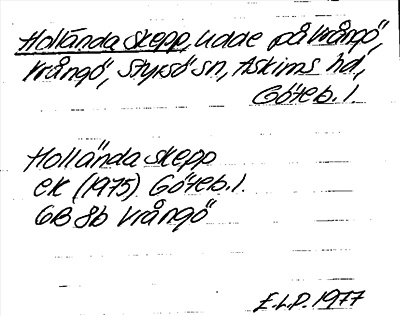 Hollända skepp, udde på Vrångö,
Vrångö, Styrsö sn, Askims hd,
Göteb. l.
Hollända skepp
ek (1975) Göteb. l.
6B 8b Vrångö
E.L.P. 1977